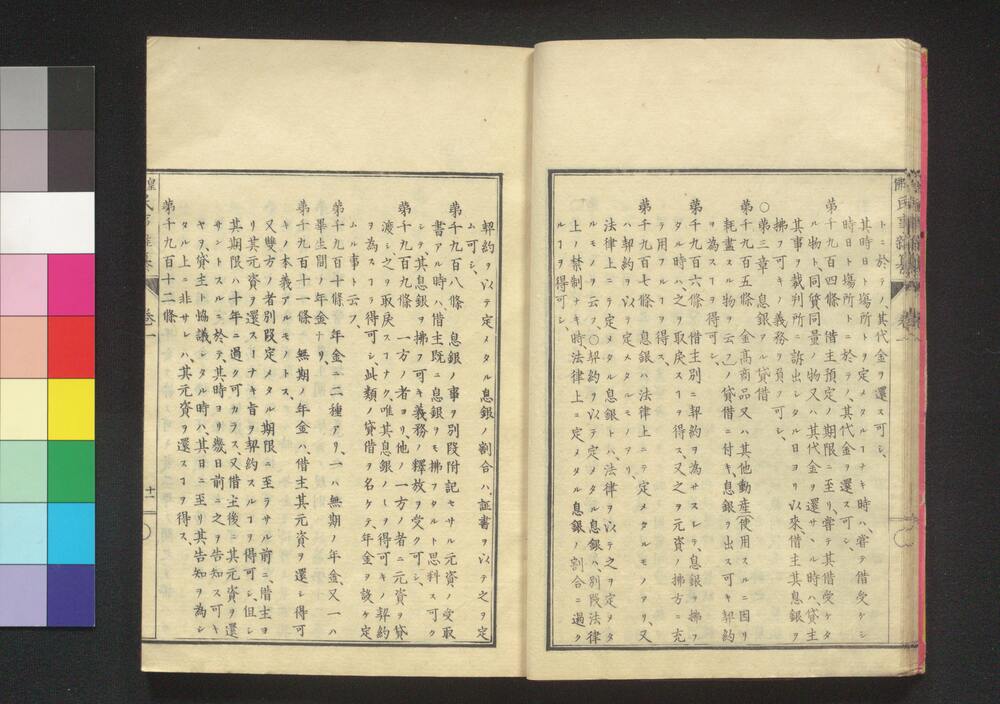 トニ於テノ其代金ヲ還ス可シ、
其時日ト場所トヲ定メタルヿナキ時ハ、嘗テ借受ケシ
時日ト場所トニ於テノ、其代金ヲ還ス可シ、
第千九百四條　借主預定ノ期限ニ至リ、嘗テ其借受ケタ
ル物ト、同質同量ノ物又ハ其代金ヲ還サヽル時ハ、貸主
其事ヲ裁判所ニ訴出シタル日ヨリ以來、借主其息銀ヲ
拂フ可キノ義務ヲ負フ可シ、
○第三章　息銀アル貸借
第千九百五條　金高商品又ハ其他動産(使用スルニ因リ
耗盡スル物ヲ云フ)ノ貸借ニ付キ、息銀ヲ出ス可キ契約
ヲ為スヿヲ得可シ、
第千九百六條　借主別ニ契約ヲ為サスシテ、息銀ヲ拂フ
タル時ハ、之ヲ取戻スヿヲ得ス、又之ヲ元資ノ拂方ニ充
テ用フルヿヲ得ス、
第千九百七條　息銀ハ法律上ニテ定メタルモノアリ、又
ハ契約ヲ以テ定メタルモノアリ、
法律上ニテ定メタル息銀トハ法律ヲ以テ之ヲ定メタ
ルモノヲ云フ、○契約ヲ以テ定メタル息銀ハ、別段法律
上ノ禁制ナキ時法律上ニ定メタル息銀ノ割合ニ過ク
ルヿヲ得可シ、
契約ヲ以テ定メタル息銀ノ割合ハ、証書ヲ以テ之ヲ定
ム可シ、
第千九百八條　息銀ノ事ヲ別段附記セサル元資ノ受取
書アル時ハ、借主既ニ息銀ヲモ拂フタルト思料ス可ク
シテ其息銀ヲ拂フ可キ義務ノ釋放ヲ受ク可シ、
第千九百九條　一方ノ者ヨリ他ノ一方ノ者ニ元資ヲ貸
渡シ之ヲ取戻スヿナク、唯其息銀ノミヲ得可キノ契約
ヲ為スヿヲ得可シ、此類ノ貸借ヲ名ケテ、年金ヲ設ケ定
ムル事ト云フ、
第千九百十條　年金ニ二種アリ、一ハ無期ノ年金、又一ハ
畢生間ノ年金ナリ、
第千九百十一條　無期ノ年金ハ、借主其元資ヲ還シ得可
キノ本義アルモノトス、
又雙方ノ者別段定メタル期限ニ至ラサル前ニ、借主ヨ
リ其元資ヲ還スヿナキ旨ヲ契約スルヿヲ得可シ、但シ
其期限ハ十年ニ過ク可カラス、又借主後ニ其元資ヲ還
サントスルニ於テ、其時ヨリ幾日前ニ之ヲ告知ス可キ
ヤヲ、貸主ト協議シタル時ハ、其日ニ至リ其告知ヲ為シ
タル上ニ非サレハ、其元資ヲ還スヿヲ得ス、
第千九百十二條
卷一
十一